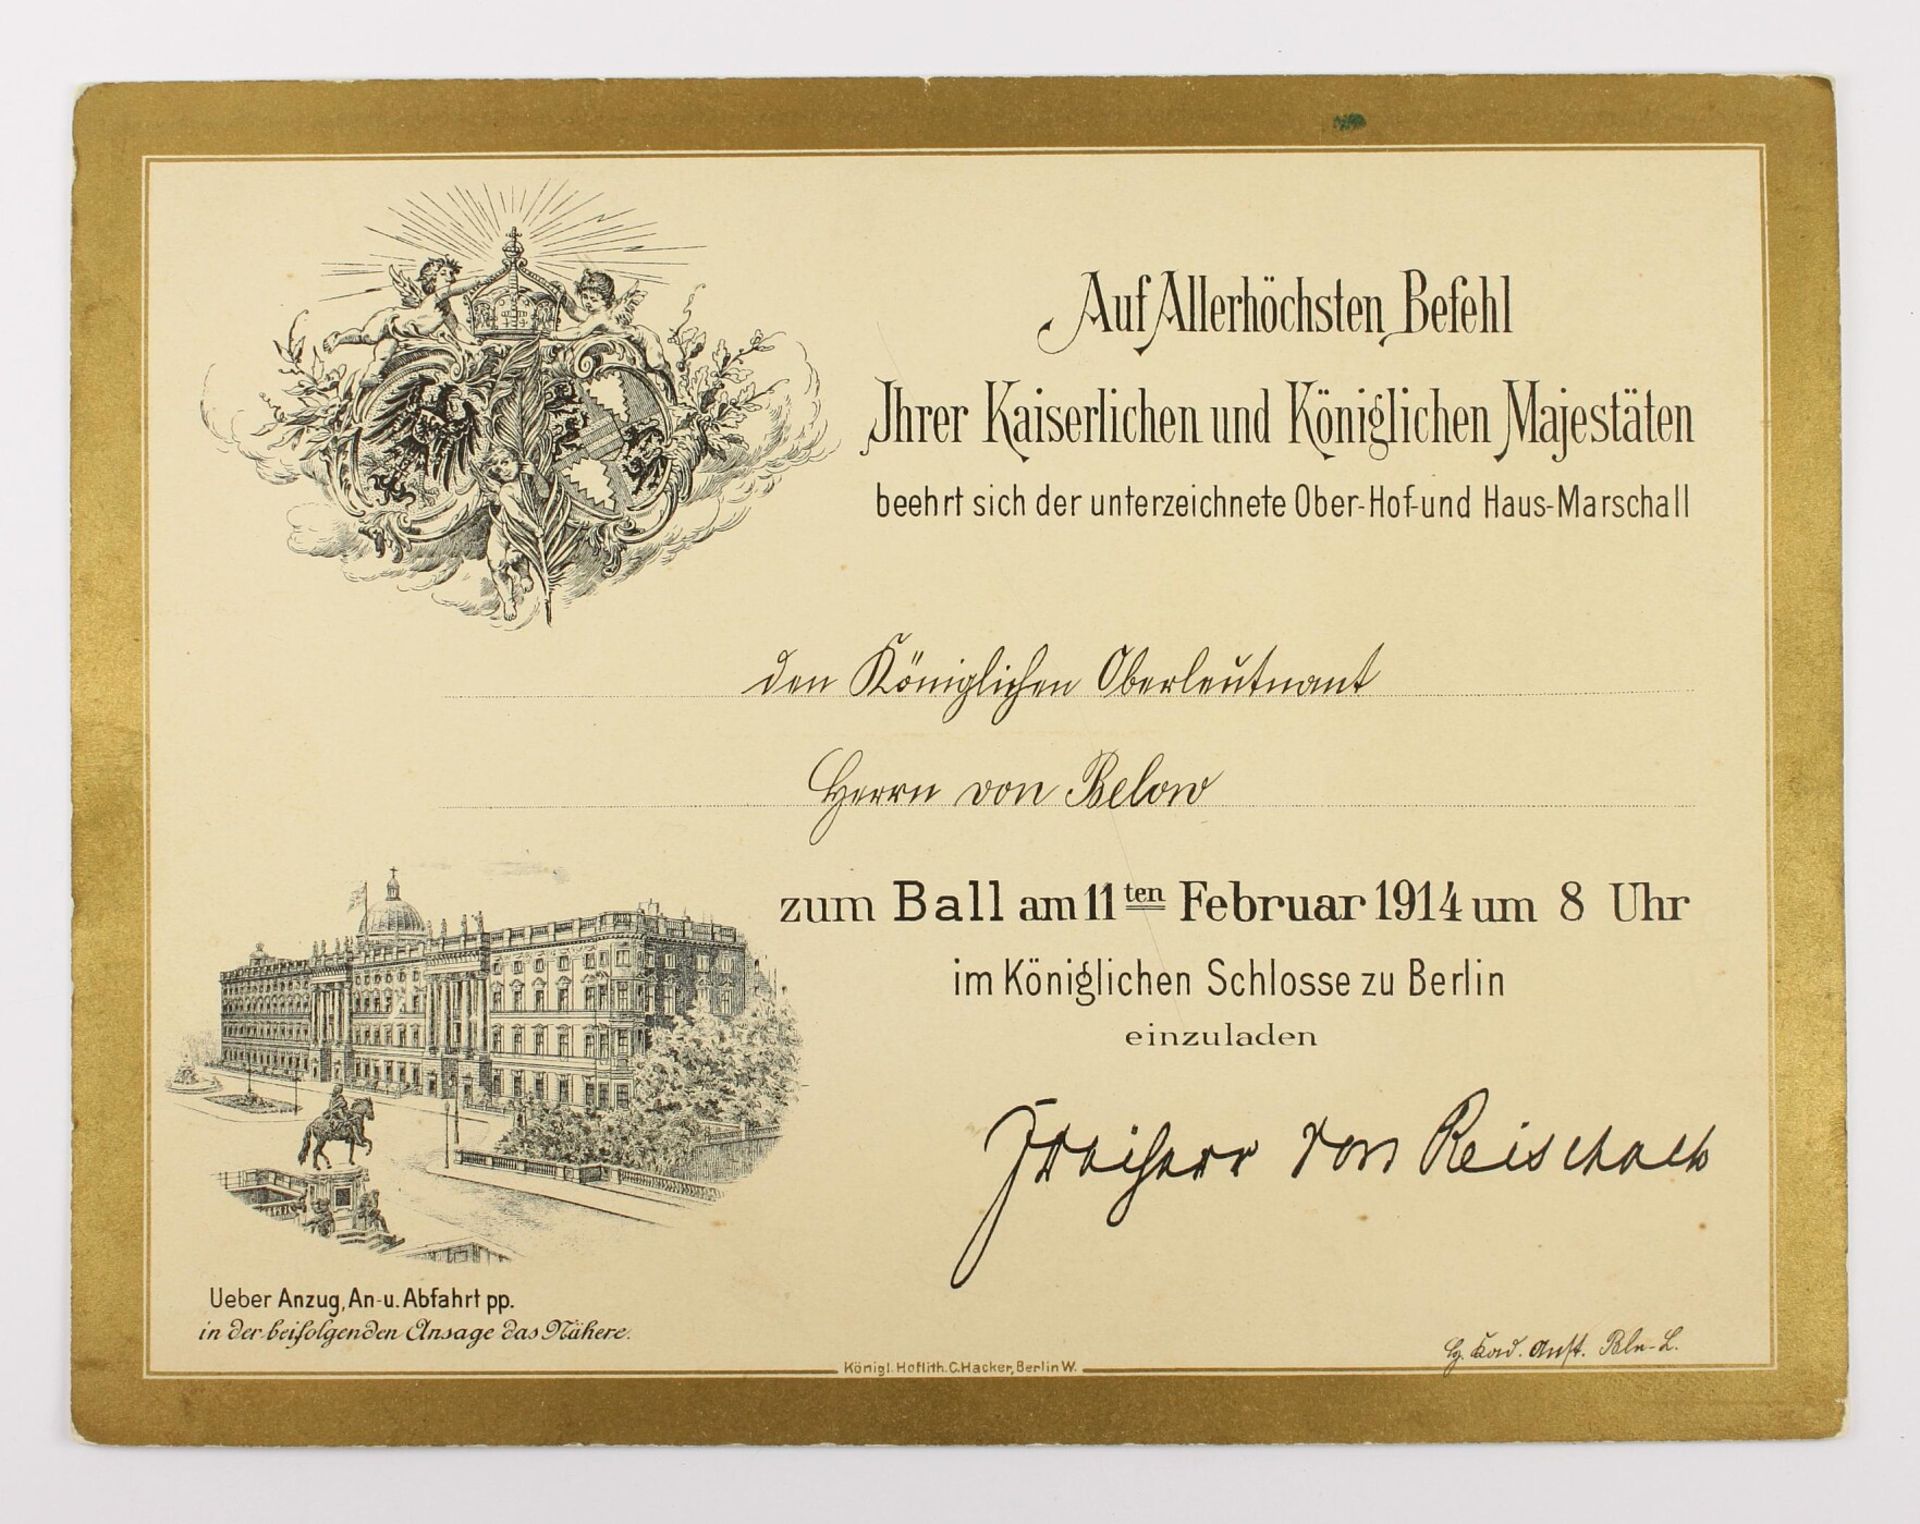 Auf Allerhöchsten Befehl
Ihrer Kaiserlichen und Königlichen Majestäten
beehrt sich der unterzeichnete Ober-Hof- und Haus-Marschall
den Königlichen Oberleutnant
Herrn von Below
zum Ball am 11ten Februar 1914 um 8 Uhr
im Königlichen Schlosse zu Berlin
einzuladen
Freiherr von Reischach
Ueber Anzug, An- u. Abfahrt pp.
in der beifolgenden Ansage das Nähere.
Kad. Anst. Bln-L.
Königl. Hoflith. C. Hacker, Berlin W.